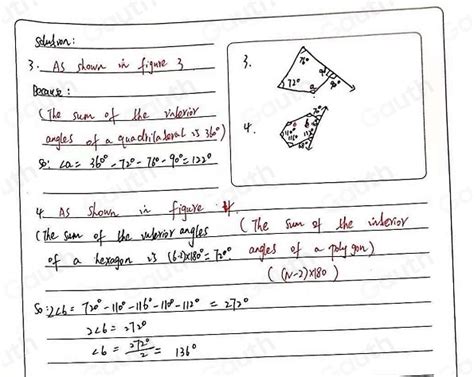 Solution:
3. As shown in figure 3
Because:
(The sum of the interior
angles of a quadrilateral is 360°)
So: ∠a = 360° - 72° - 76° - 90° = 122°
3.
76°
72°
a
4.
4. As shown in figure 4.
(The sum of the interior angles
of a hexagon is (6-2)×180° = 720°
(The sum of the interior
angles of a polygon)
((N-2)×180)
So: 2∠b = 720° - 110° - 116° - 110° - 112° = 272°
2∠b = 272°
∠b = 272°/2 = 136°
Gauth